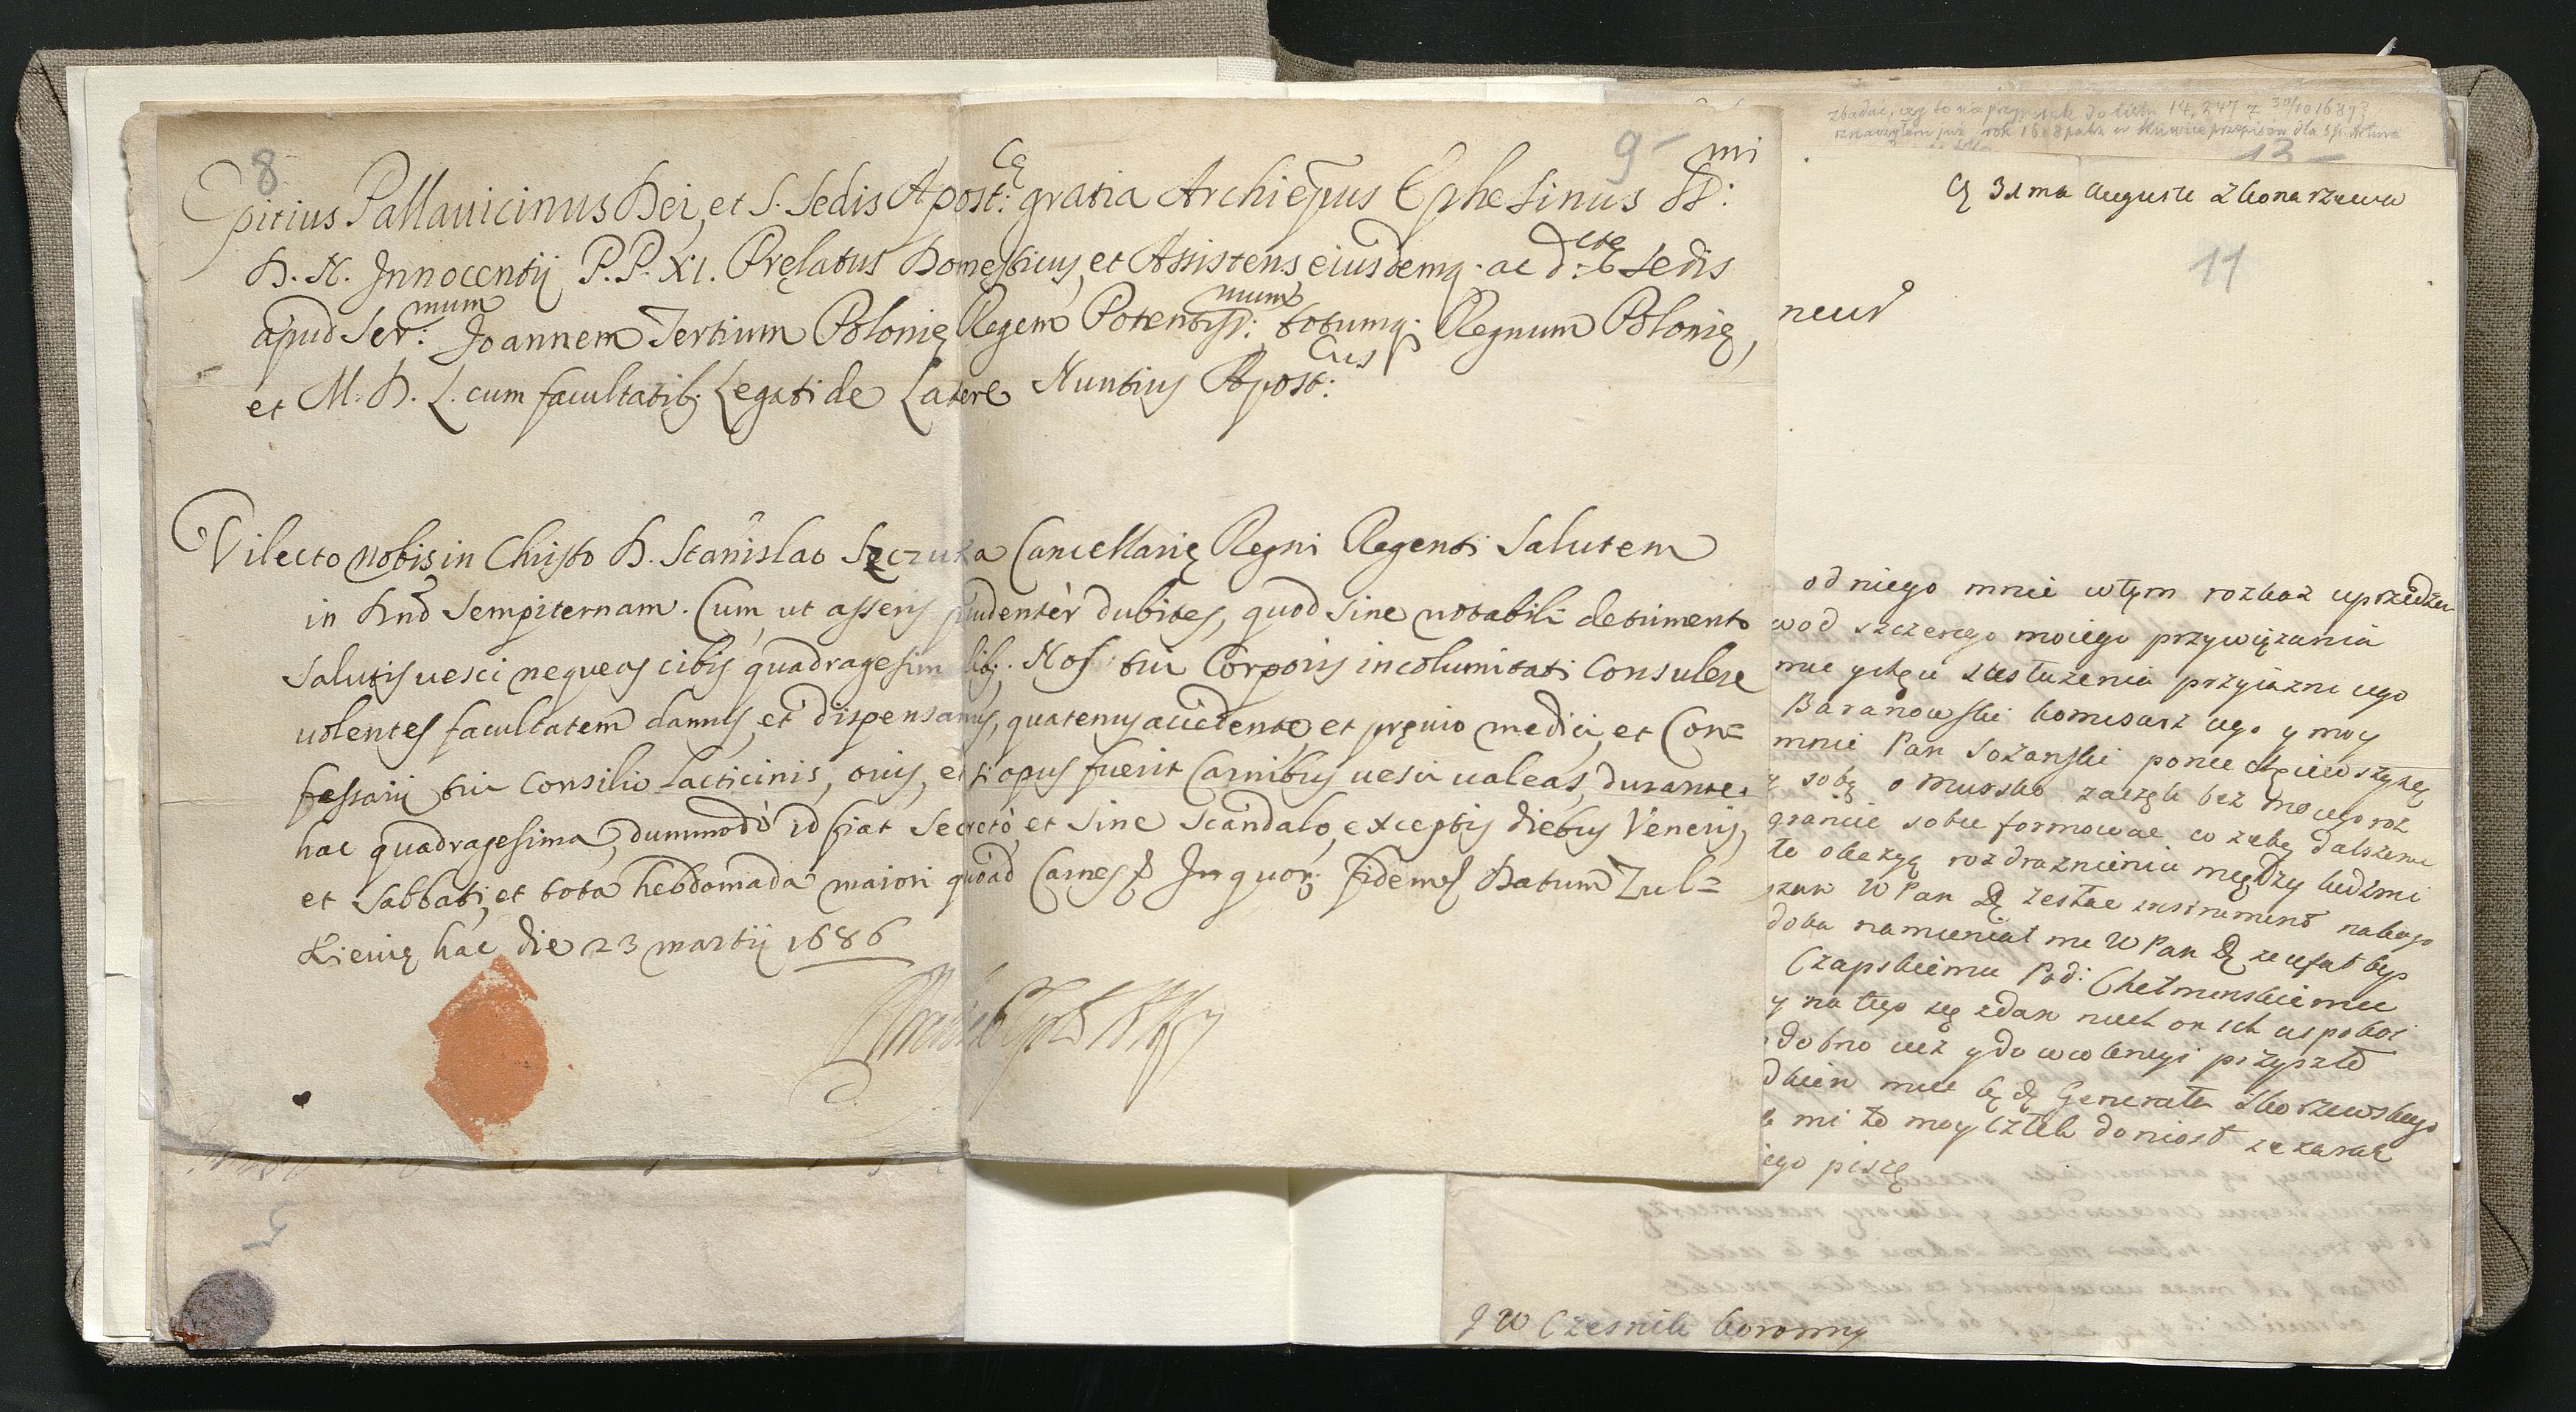 8
9
Opitius Pallauicinus Dei, et S. Sedis Apost:cę gratia Archiepus Ephesinus SS:mi
D. N. Innocentij P.P. XI. Pręlatus Domesticus, et Assistens eiusdemq. ac d:ctę Sedis
apud Ser:mum Joannem Tertium Polonię Regem Potentiss:mum totumq. Regnum Polonię,
et M. D. L. cum facultatib; Legati de Latere Nuntius Apost:cus
Dilecto nobis in Christo D. Stanislao Szczuka Cancellarię Regni Regenti Salutem
in Dno Sempiternam. Cum, ut asseris prudentèr dubites, quod sine notabili detrimento
salutis uesci nequeas cibis quadragesimalib;. Nos tui Corporis incolumitati Consulere
uolentes facultatem damus, et dispensamus, quatenus accedente, et pręuio medici, et Con=
fessarij tui Consilio Lacticinis, ouis, et si opus fuerit Carnibus uesci ualeas, durante
hac quadragesima, dummodò id fiat Secretò, et sine Scandalo, exceptis diebus Veneris,
et Sabbati, et tota hebdomada maiori quoad Carnes In quor; fidem Datum Zul=
kieuię hac die 23 martij 1686
5
13
11
31 ma Augusta
neur
od niego mnie w tym rozkaz uprzedzen
wod szczerego moiego przywiązania
zasłuzenia przyiazni iego
Baranowski komisarz iego y moy
mnie Pan Sozanski
sobą o Mursko zaczęli bez mego roz
granice sobie formowac
to okazyą rozdraznienia między ludzmi
W Pan zesłac instrument
doba namieniał mi W Pan
Czapskiemu Pod: Chełmenskiemu
y na tego się zdam niech on ich uspokoi
dobno iuz y do wiolencyi przyszło
będę Generała
mi to moy człek doniosł ze zaraz
iego piszę
J W Czesnik koronny